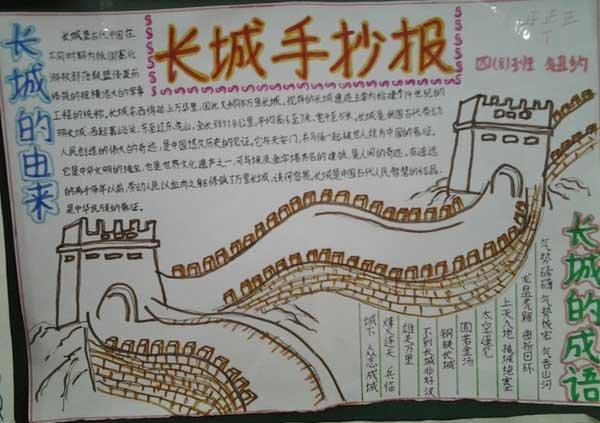 长城手抄报
四(8)班
长城的由来
长城是古代中国在
不同时期为抵御塞北
游牧部落联盟侵袭而
修筑的规模浩大的军事
工程的统称。长城东西绵延上万华里,因此又称作万里长城。现存的长城遗迹主要为始建于14世纪的
明长城,西起嘉峪关,东至辽东虎山,全长8851.8公里,平均高6至7米,宽4至5米。长城是我国古代劳动
人民创造的伟大的奇迹,是中国悠久历史的见证。它与天安门,兵马俑一起被世人视为中国的象征。
它是中华文明的瑰宝,也是世界文化遗产之一,可与埃及金字塔齐名的建筑,是人间的奇迹。在遥远
的两千多年以前,劳动人民以血肉之躯修筑了万里长城,谈何容易。长城是中国古代人民智慧的结晶,
是中华民族的象征。
长城的成语
气势磅礴 气势恢宏 气吞山河
龙盘虎踞 曲折回环
上天入地
太空遥见
固若金汤
钢铁长城
不到长城非好汉
雄关万里
烽火连天 兵临
城下 众志成城